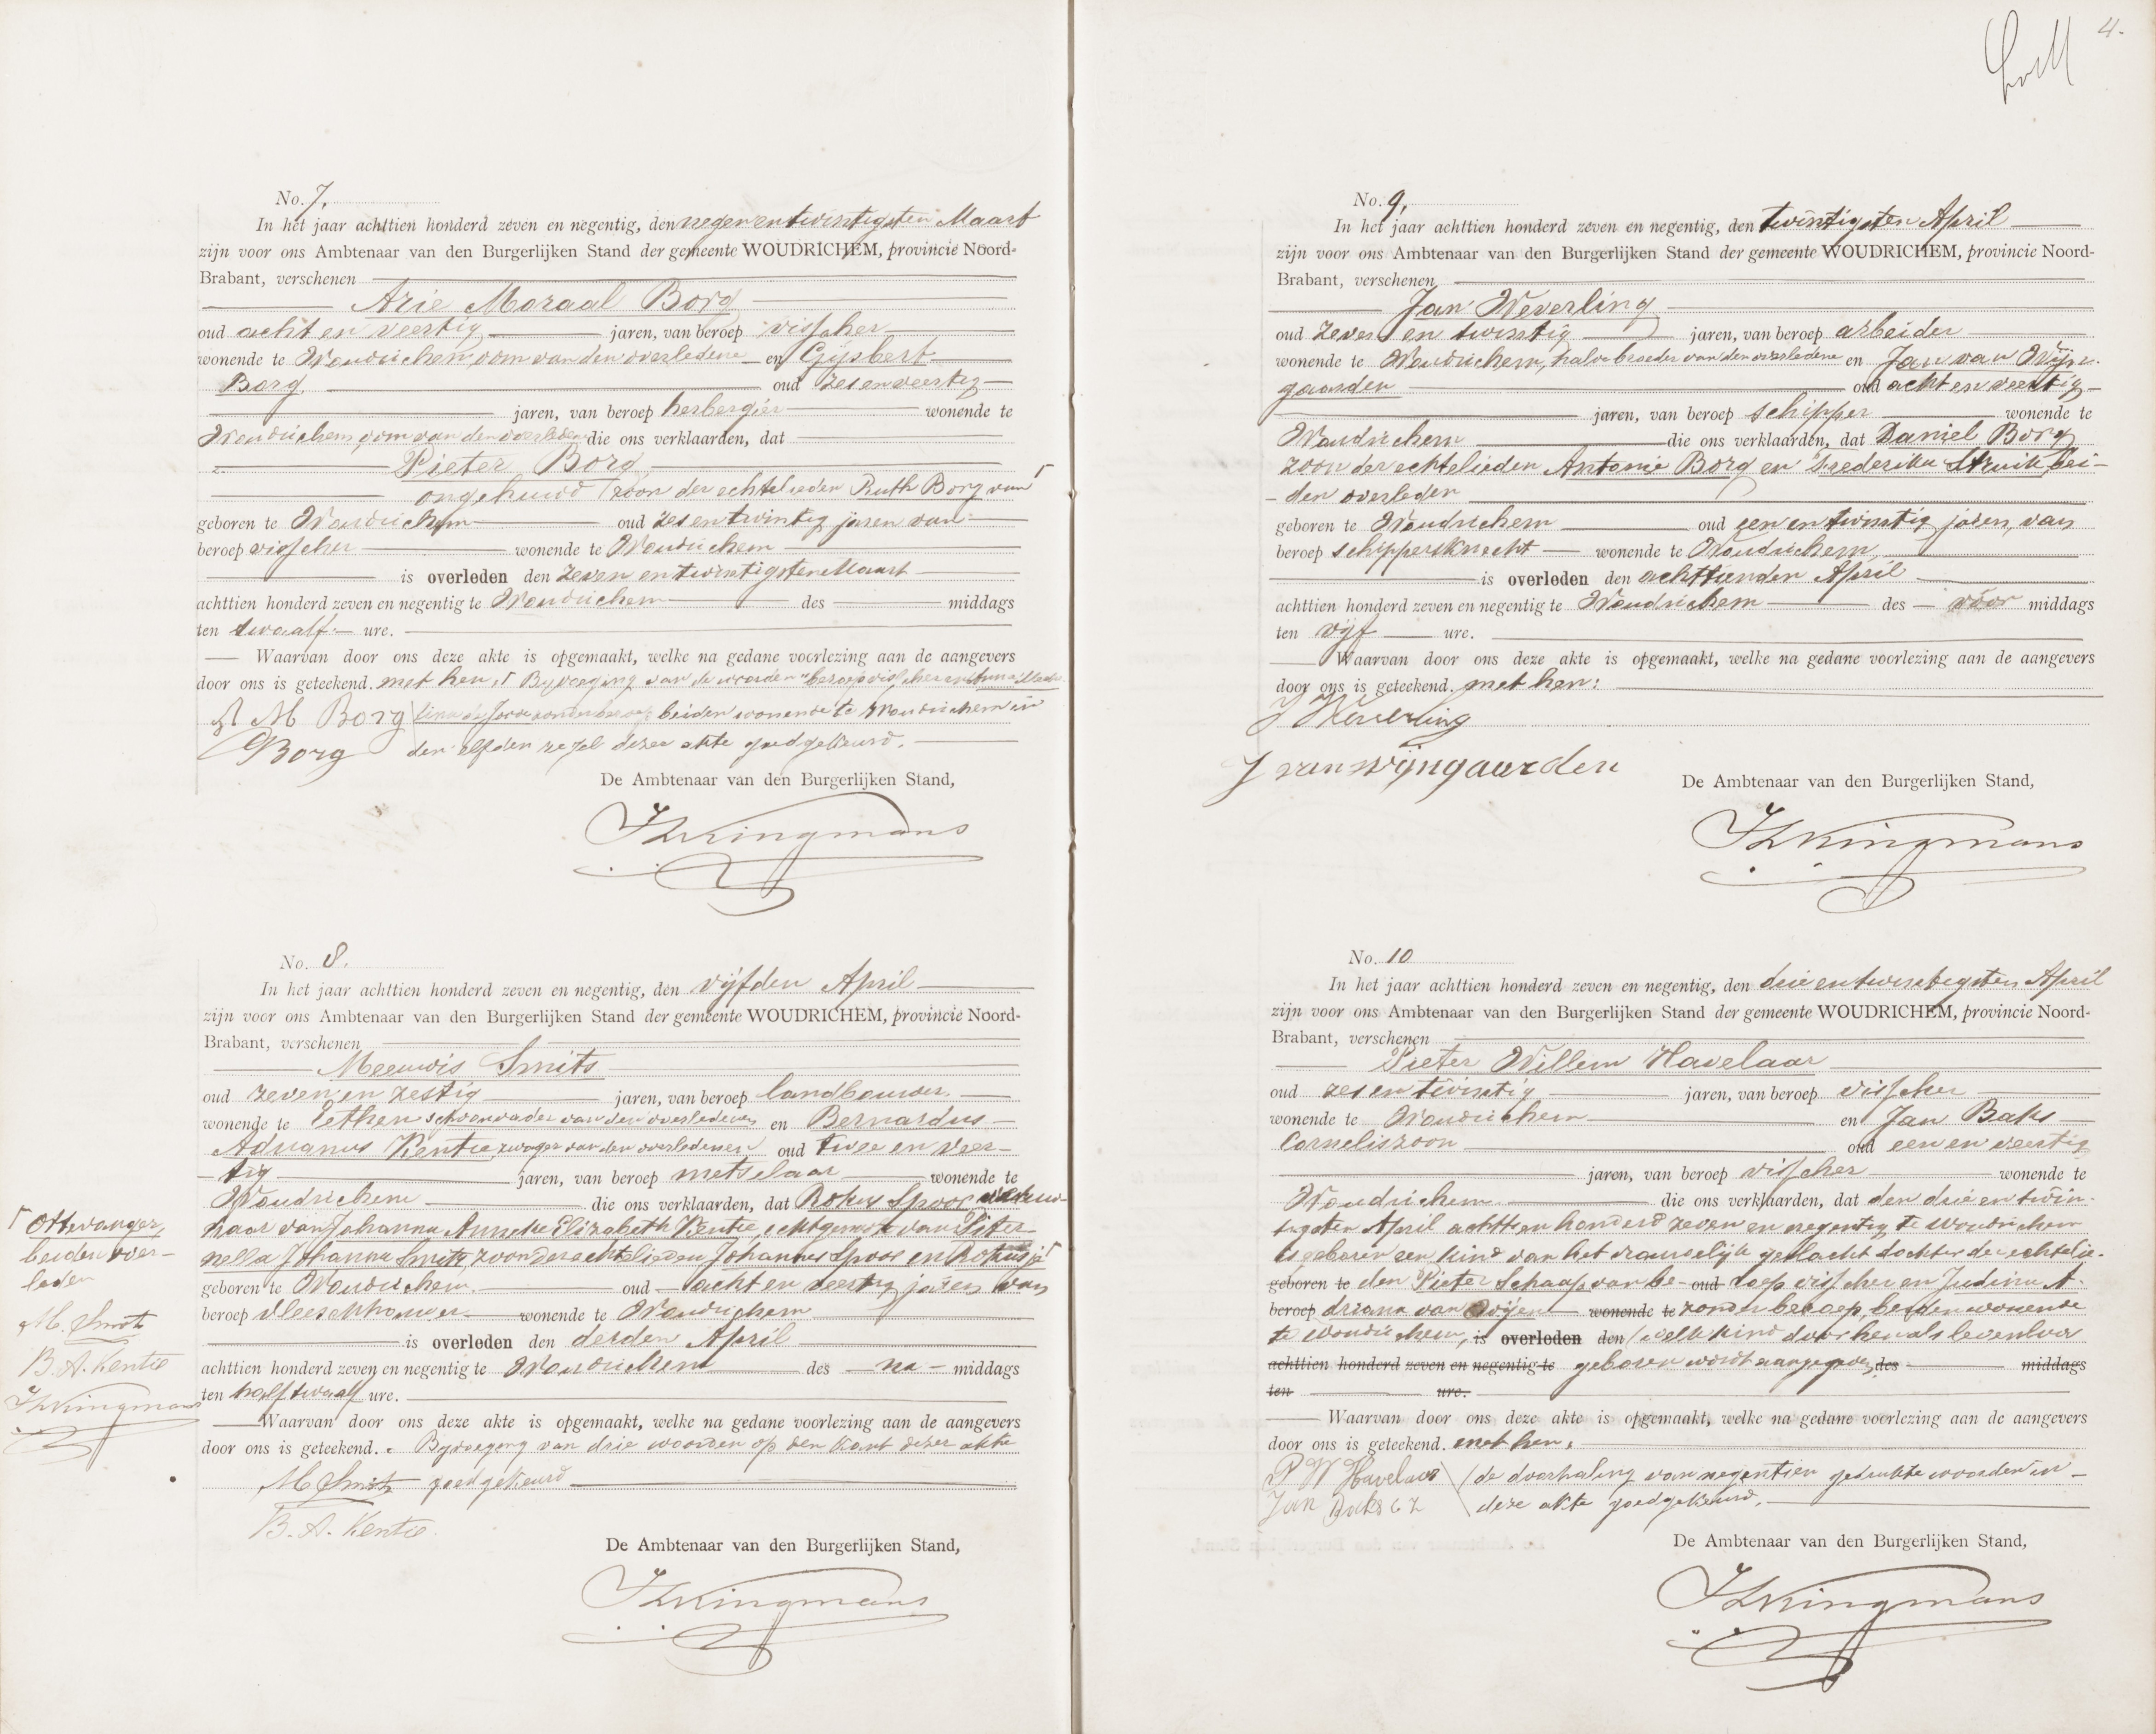 4.
No. 7,
In het jaar achttien honderd zeven en negentig, den negenentwintigsten Maart
zijn voor ons Ambtenaar van den Burgerlijken Stand der gemeente WOUDRICHEM, provincie Noord-
Brabant, verschenen
Arie Moraal Borg
oud acht en veertig jaren, van beroep visscher
wonende te Woudrichem, oom van den overledene en Gijsbert
Borg oud zes en veertig
jaren, van beroep herbergier wonende te
Woudrichem, oom van den overledene die ons verklaarden, dat
Pieter Borg
ongehuwd zoon der echtelieden Ruth Borg van
geboren te Woudrichem oud zes en twintig jaren van
beroep visscher wonende te Woudrichem
is overleden den zeven en twintigsten Maart
achttien honderd zeven en negentig te Woudrichem des middags
ten twaalf ure.
Waarvan door ons deze akte is opgemaakt, welke na gedane voorlezing aan de aangevers
door ons is geteekend. met hen, Bijvoeging van de woorden "beroep visscher en Anna
A M Borg beiden wonende te Woudrichem in
Borg den elfden regel dezer akte goedgekeurd.
De Ambtenaar van den Burgerlijken Stand,
No. 8.
In het jaar achttien honderd zeven en negentig, den vijfden April
zijn voor ons Ambtenaar van den Burgerlijken Stand der gemeente WOUDRICHEM, provincie Noord-
Brabant, verschenen
Meeuwis Smits
oud zeven en zestig jaren, van beroep landbouwer
wonende te Eethen schoonvader van den overledenen en Bernardus
Adrianus Kentie, zwager van den overledenen oud twee en veer-
tig jaren, van beroep metselaar wonende te
Woudrichem die ons verklaarden, dat Rokus Spoor weduw-
naar van Johanna Anneke Elizabeth Kentie, echtgenoot van Pieter-
nella Johanna Smits, zoon der echtelieden Johannes Spoor en Rokusje
geboren te Woudrichem oud acht en veertig jaren van
beroep vleeschhouwer wonende te Woudrichem
is overleden den derden April
achttien honderd zeven en negentig te Woudrichem des na middags
ten half twaalf ure.
Waarvan door ons deze akte is opgemaakt, welke na gedane voorlezing aan de aangevers
door ons is geteekend. Bijvoeging van drie woorden op den kant dezer akte
M Smits goedgekeurd
B. A. Kentie.
De Ambtenaar van den Burgerlijken Stand,
Ottevanger,
beiden over-
leden
M. Smits
B. A. Kentie
No. 9,
In het jaar achttien honderd zeven en negentig, den twintigsten April
zijn voor ons Ambtenaar van den Burgerlijken Stand der gemeente WOUDRICHEM, provincie Noord-
Brabant, verschenen
Jan Weverling
oud zeven en twintig jaren, van beroep arbeider
wonende te Woudrichem, halve broeder van den overledene en Jan van Wijn-
gaarden oud acht en veertig
jaren, van beroep schipper wonende te
Woudrichem die ons verklaarden, dat Daniel Borg
zoon der echtelieden Antonie Borg en Frederika Struik, bei-
den overleden
geboren te Woudrichem oud een en twintig jaren, van
beroep schippersknecht wonende te Woudrichem,
is overleden den achttienden April
achttien honderd zeven en negentig te Woudrichem des voor middags
ten vijf ure.
Waarvan door ons deze akte is opgemaakt, welke na gedane voorlezing aan de aangevers
door ons is geteekend. met hen:
J Weverling
J van wijngaarden
De Ambtenaar van den Burgerlijken Stand,
No. 10
In het jaar achttien honderd zeven en negentig, den drie en twintigsten April
zijn voor ons Ambtenaar van den Burgerlijken Stand der gemeente WOUDRICHEM, provincie Noord-
Brabant, verschenen
Pieter Willem Havelaar
oud zes en twintig jaren, van beroep visscher
wonende te Woudrichem en Jan Baks
Corneliszoon oud een en veertig
jaren, van beroep visscher wonende te
Woudrichem die ons verklaarden, dat den drie en twin-
tigsten April achttien honderd zeven en negentig te Woudrichem
is geboren een kind van het vrouwelijk geslacht dochter der echtelie-
geboren te den Pieter Schaap van be- oud roep visscher en Judina A-
beroep driana van wonende te zonder beroep, beiden wonende
te Woudrichem, is overleden den welk kind door hen als levenloos
achttien honderd zeven en negentig te geboren wordt aangegeven des middags
ten ure.
Waarvan door ons deze akte is opgemaakt, welke na gedane voorlezing aan de aangevers
door ons is geteekend. met hen,
P W Havelaar (de doorhaling van negentien gedrukte woorden in
Jan Baks C Z deze akte goedgekeurd.
De Ambtenaar van den Burgerlijken Stand,